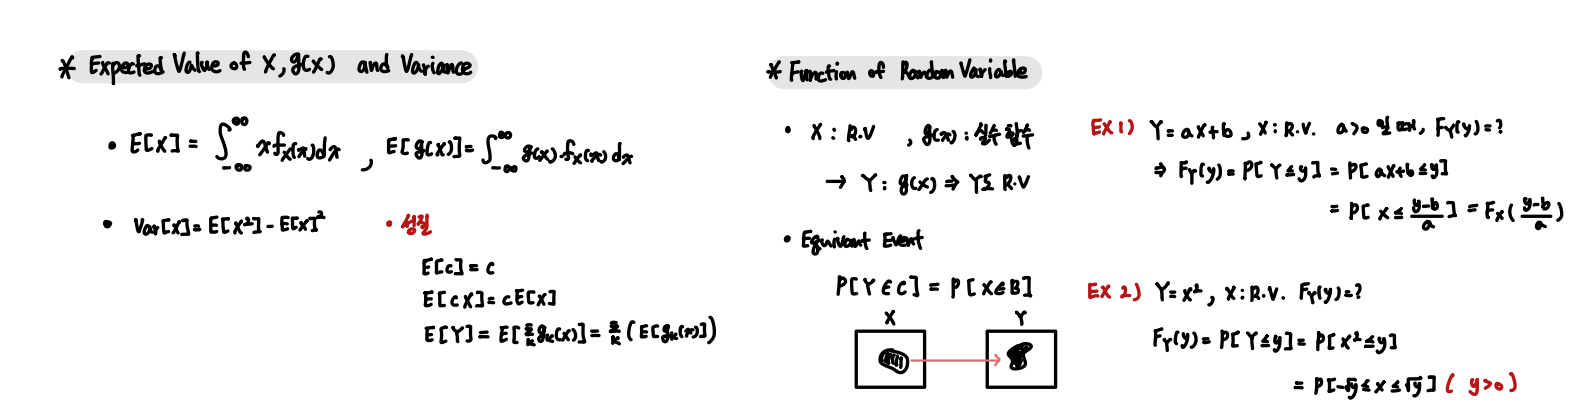 * Expected Value of X, g(X) and Variance
• E[X] = ∫_{-∞}^{∞} x f_X(x) dx , E[g(X)] = ∫_{-∞}^{∞} g(x) · f_X(x) dx
• Var[X] = E[X²] - E[X]²
• 성질
E[c] = c
E[cX] = cE[X]
E[Y] = E[Σ_k g_k(X)] = Σ_k (E[g_k(x)])
* Function of Random Variable
• X : R.V , g(x) : 실수 함수
→ Y : g(X) ⇒ Y도 R.V
• Equivant Event
P[Y ∈ C] = P[X ∈ B]
X Y
EX 1) Y = aX+b , X : R.V. a>0 일 때, F_Y(y) = ?
⇒ F_Y(y) = P[Y ≤ y] = P[aX+b ≤ y]
= P[X ≤ (y-b)/a] = F_X((y-b)/a)
EX 2) Y = X² , X : R.V. F_Y(y) = ?
F_Y(y) = P[Y ≤ y] = P[X² ≤ y]
= P[-√y ≤ X ≤ √y] (y>0)